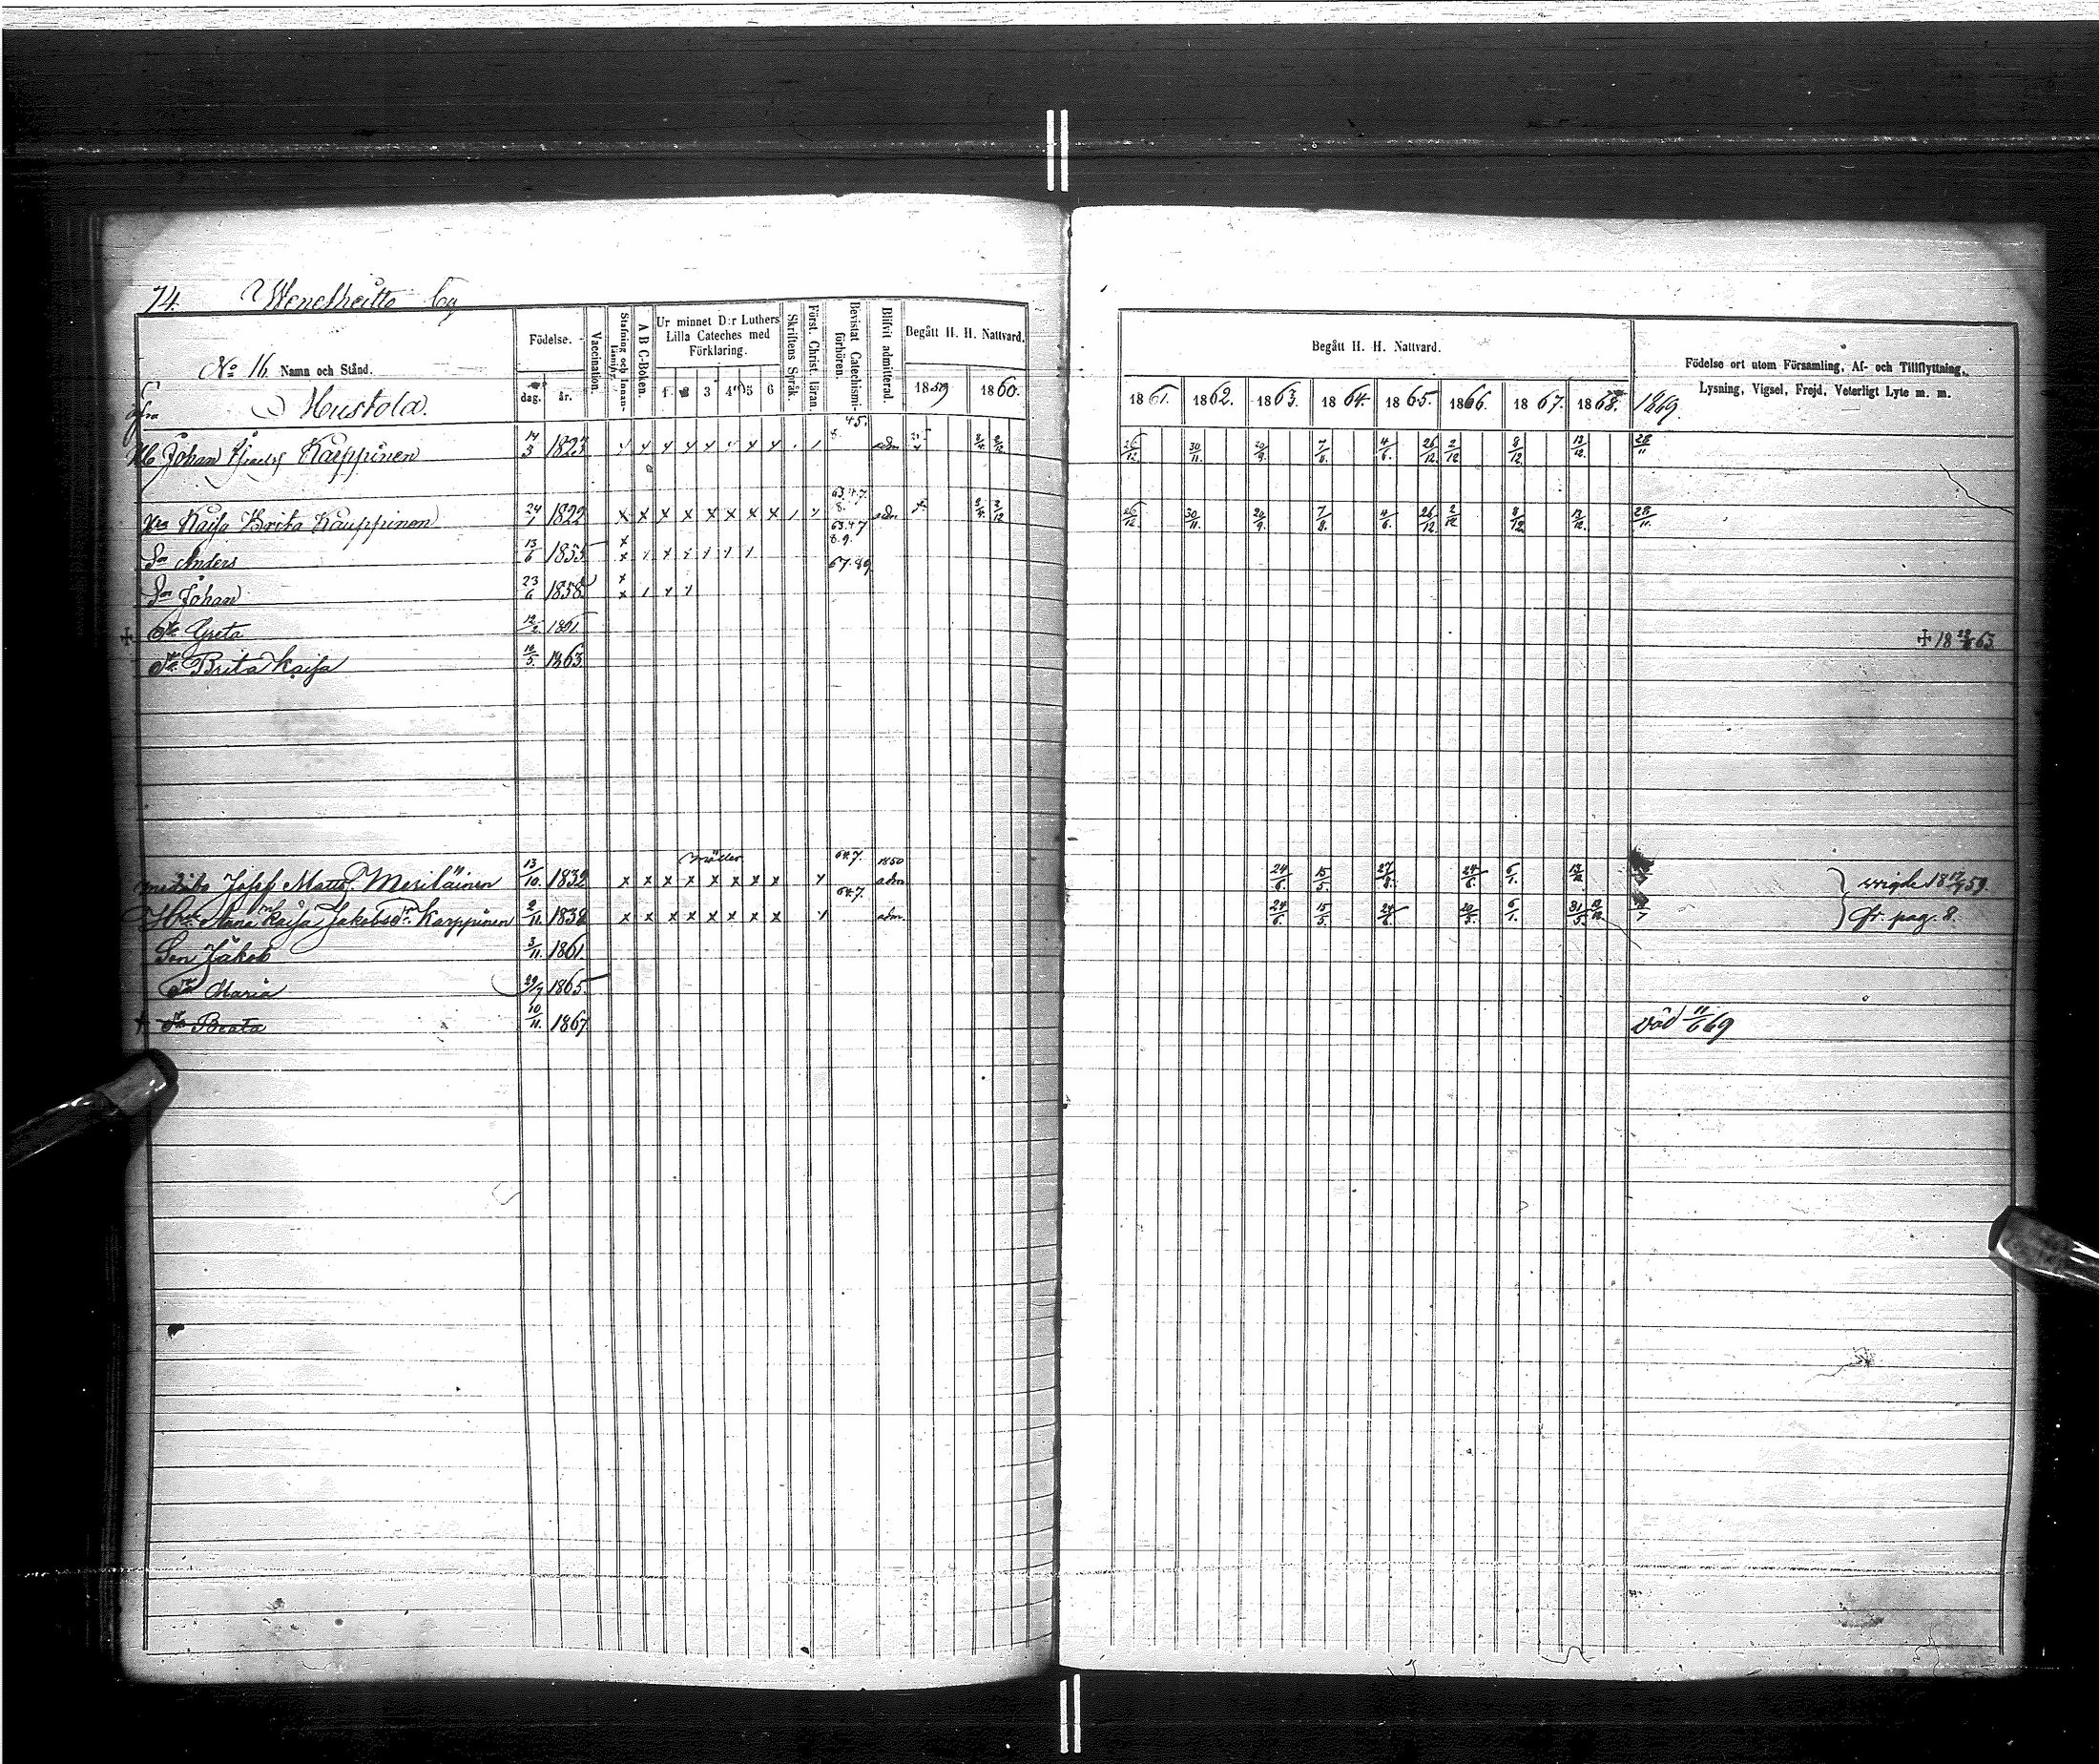 74. Wenetheitto by
No 16. Namn och Stånd.
Födelse.
dag. år.
Vaccination.
Stafning och Innanläsning.
A B C-Boken.
Ur minnet D:r Luthers Lilla Cateches med Förklaring.
1 2 3 4 5 6
Skriftens Språk.
Först. Christ. läran.
Bevistat Catechismiförhören.
Blifvit admitterad.
Begått H. H. Nattvard.
1859 1860.
Begått H. H. Nattvard.
1861. 1862. 1863. 1864. 1865. 1866. 1867. 1868. 1869.
Födelse ort utom Församling, Af- och Tillflyttning,
Lysning, Vigsel, Frejd, Veterligt Lyte m. m.
Hustola.
45.
Johan Karppinen 14/3 1823 adm 26/12 30/11 20/9 7/8 4/6 26/12 2/12 8/12 13/12 28/11
63.47
Kaisa Brita Kauppinen 24/1 1822 x x x x x x x x 8. adm 26/12 30/11 20/9 7/8 4/6 26/12 2/12 8/12 13/12 28/11
63.47
Son Anders 13/6 1855 8.9.
67.89
Son Johan 23/6 1858
+ Dr Greta 12/2 1861 + 63
Dr Brita Kaisa 12/5 1863
Måller 64.7. 1850
Josef Matts. Meriläinen 13/10 1832 x x x x x x x x adm 24/6 15/5 27/8 24/6 6/1 13/12 vigde 18 59.
64.7.
Hu Anna Kaisa Jakobsdr Karppinen 2/11 1838 x x x x x x x x adm. 24/6 15/5 24/6 20/5 6/1 31/5 13/12 fr. pag. 8.
Son Jakob 3/11 1861
Dr Maria 29/9 1865
+ Dr Beata 10/11 1867 död 11/6 69